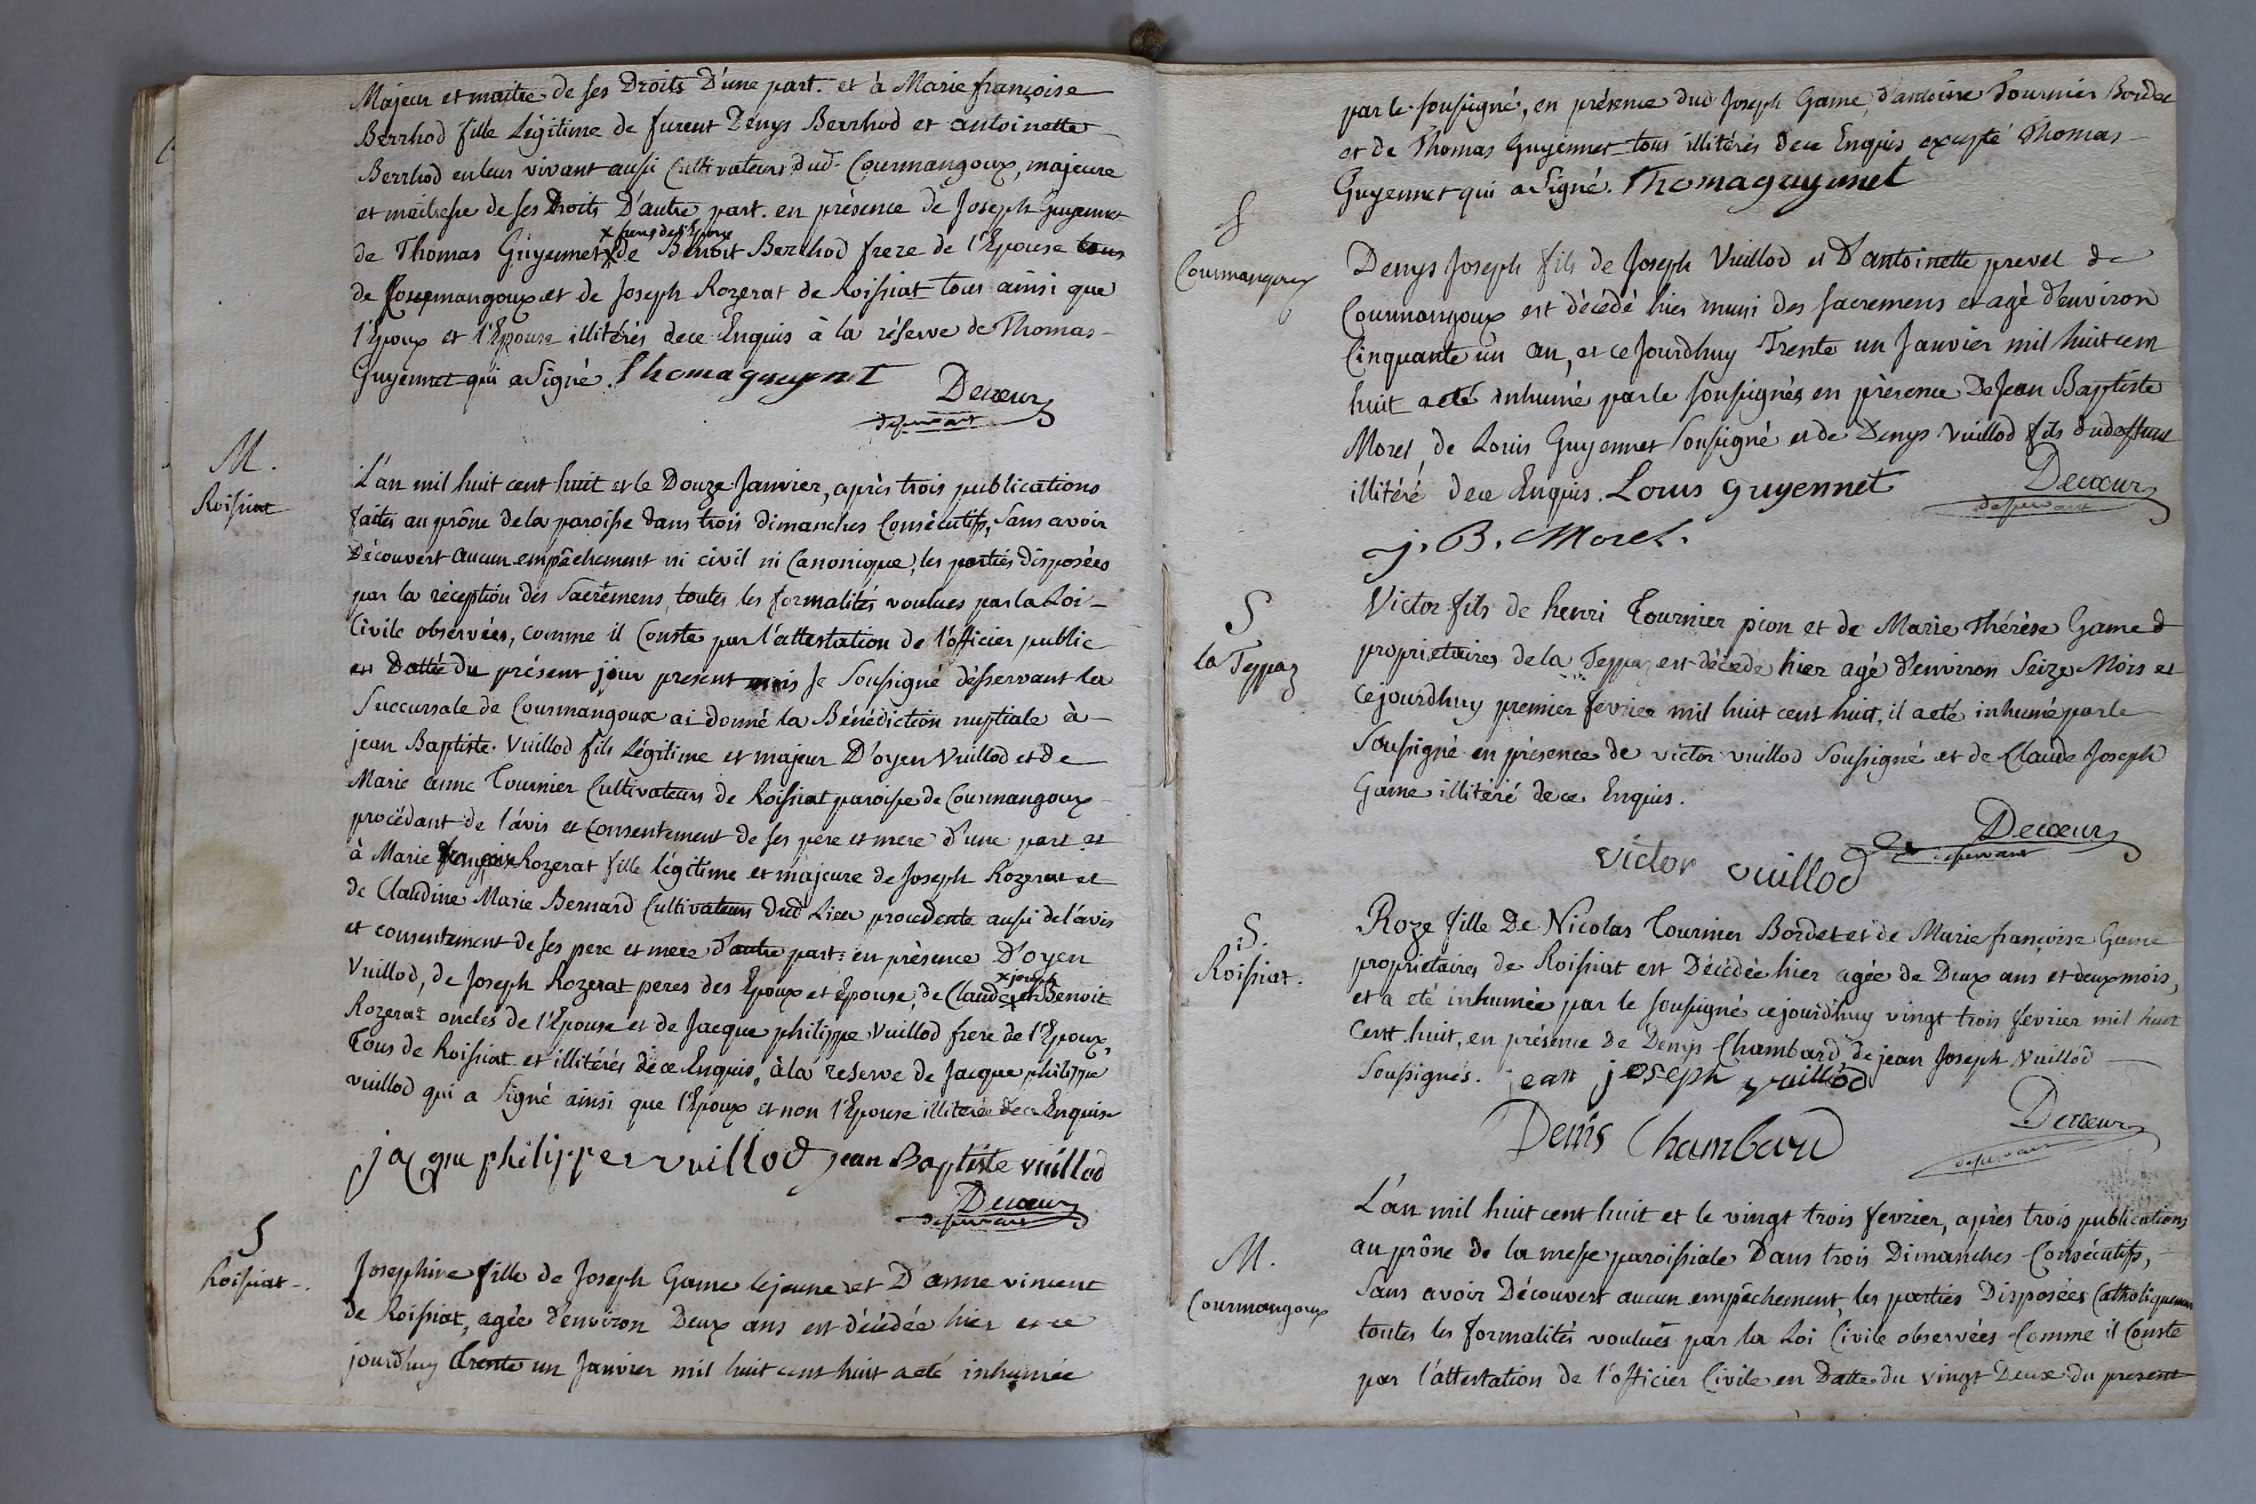 Majeur et maitre de ses Droits D'une part. et à Marie françoise
Berrhod fille Légitime de furent Denys Berrhod et antoinette
Berrhod en leur vivant aussi Cultivateurs dud. Courmangoux, majeure
et maitresse de ses Droits D'autre part. en présence de Joseph Guyennet
x frere de l'Epoux
de Thomas Guyennet x de Benoit Berrhod frere de l'Epouse tous
de Courmangoux et de Joseph Rozerat de Roissiat tous ainsi que
l'Epoux et l'Epouse illitérés de ce Enquis à la réserve de Thomas
Guyennet qui a signé. Thomaguyenet
Decœur
desservant
M.
Roissiat
L'an mil huit cent huit et le Douze Janvier, après trois publications
faites au prône de la paroisse dans trois dimanches Consécutifs, Sans avoir
Découvert aucun empêchement ni civil ni Canonique, les parties disposées
par la réception des Sacremens, toutes les formalités voulues par la Loi
Civile observées, comme il Conste par l'attestation de l'officier public
en Datte du présent jour present mois Je Soussigné désservant la
Succursale de Courmangoux ai donné la Bénédiction nuptiale à
jean Baptiste Vuillod fils Légitime et majeur D'oyen Vuillod et de
Marie anne Tournier Cultivateurs de Roissiat paroisse de Courmangoux
procédant de l'avis et Consentement de ses pere et mere d'une part et
à Marie françoise Rozerat fille légitime et majeure de Joseph Rozerat et
de Claudine Marie Bernard Cultivateurs dud Lieu procedente aussi de l'avis
et consentement de ses pere et mere d'autre part: en présence D'oyen
x joseph
Vuillod, de Joseph Rozerat peres des Epoux et épouse, de Claude x et Benoit
Rozerat oncles de l'Epouse et de Jacque philippe Vuillod frere de l'Epoux,
Tous de Roissiat et illitérés de ce Enquis, à la reserve de Jacque philippe
vuillod qui a Signé ainsi que l'Epoux et non l'Epouse illiterée de ce Enquise
jacque philippe vuillod jean Baptiste vuillod
Decœur
desservant
S
Roissiat.
Josephine fille de Joseph Game lejeune et D'anne vincent
de Roissiat, agée d'environ Deux ans est décédée hier et ce
jourd'huy trente un Janvier mil huit cent huit a eté inhumée
par le soussigné, en présence dud Joseph Game, d'antoine Tournier Bordet
et de Thomas Guyennet tous illitérés de ce Enquis excepté Thomas
Guyennet qui a Signé. Thomaguyennet
S
Courmangoux
Denys Joseph fils de Joseph Vuillod et D'antoinette prevel de
Courmangoux est décédé hier muni des sacremens et agé d'environ
Cinquante un an, et ce Jourdhuy Trente un Janvier mil huit cent
huit a eté inhumé par le soussigné en présence De Jean Baptiste
Morel, de Louis Guyennet Soussigné et de Denys Vuillod fils du deffunt
illitéré de ce Enquis. Louis Guyennet
Decœur
desservant
j. B. Morel.
S
la Teppaz
Victor fils de henri Tournier pion et de Marie Thérèse Game
proprietaires de la Teppaz est décedé hier agé d'environ Seize Mois et
cejourdhuy premier fevrier mil huit cent huit, il a eté inhumé par le
Soussigné en présence de victor vuillod Soussigné et de Claude Joseph
Game illitéré de ce Enquis.
Decœur
desservant
victor vuillod
S.
Roissiat.
Roze fille De Nicolas Tournier Bordet et de Marie françoise Game
proprietaires de Roissiat est Décédée hier agée de Deux ans et deux mois,
et a eté inhumée par le soussigné cejourdhuy vingt trois fevrier mil huit
Cent huit, en présence De Denys Chambard de jean Joseph Vuillod
Soussignés. jean joseph vuillod
Denis Chambard
Decœur
desservant
M.
Courmangoux
L'an mil huit cent huit et le vingt trois fevrier, après trois publications
au prône de la messe paroissiale Dans trois Dimanches Consécutifs,
Sans avoir Découvert aucun empêchement, les parties Disposées Catholiquement
toutes les formalités voulues par la Loi Civile observées Comme il Conste
par l'attestation de l'officier Civile en Datte du vingt Deux du present